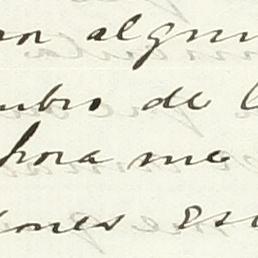 on algun
ubio de l
hora me
ones es